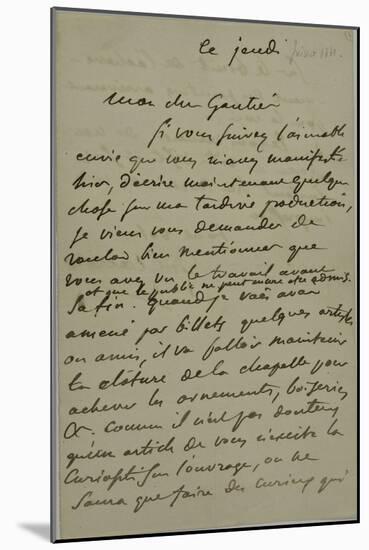 ce jeudi
février 1861.
mon cher Gautier
Si vous suivez l'aimable
envie que vous m'avez manifestée
hier, d'écrire maintenant quelque
chose sur ma tardive production,
je viens vous demander de
vouloir bien mentionner que
vous avez vu le travail avant
et que le public ne peut encore être admis.
sa fin. Quand je vais avoir
amené par billets quelques artistes
ou amis, il va falloir maintenir
la clôture de la chapelle pour
achever les ornements, boiseries
&. Comme il n'est pas douteux
qu'un article de vous n'excite la
curiosité sur l'ouvrage, on ne
saura que faire des curieux qui